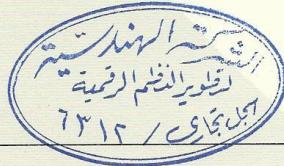 الشركة الهندسية
لتطوير النظم الرقمية
سجل تجاري / ٦٣١٢